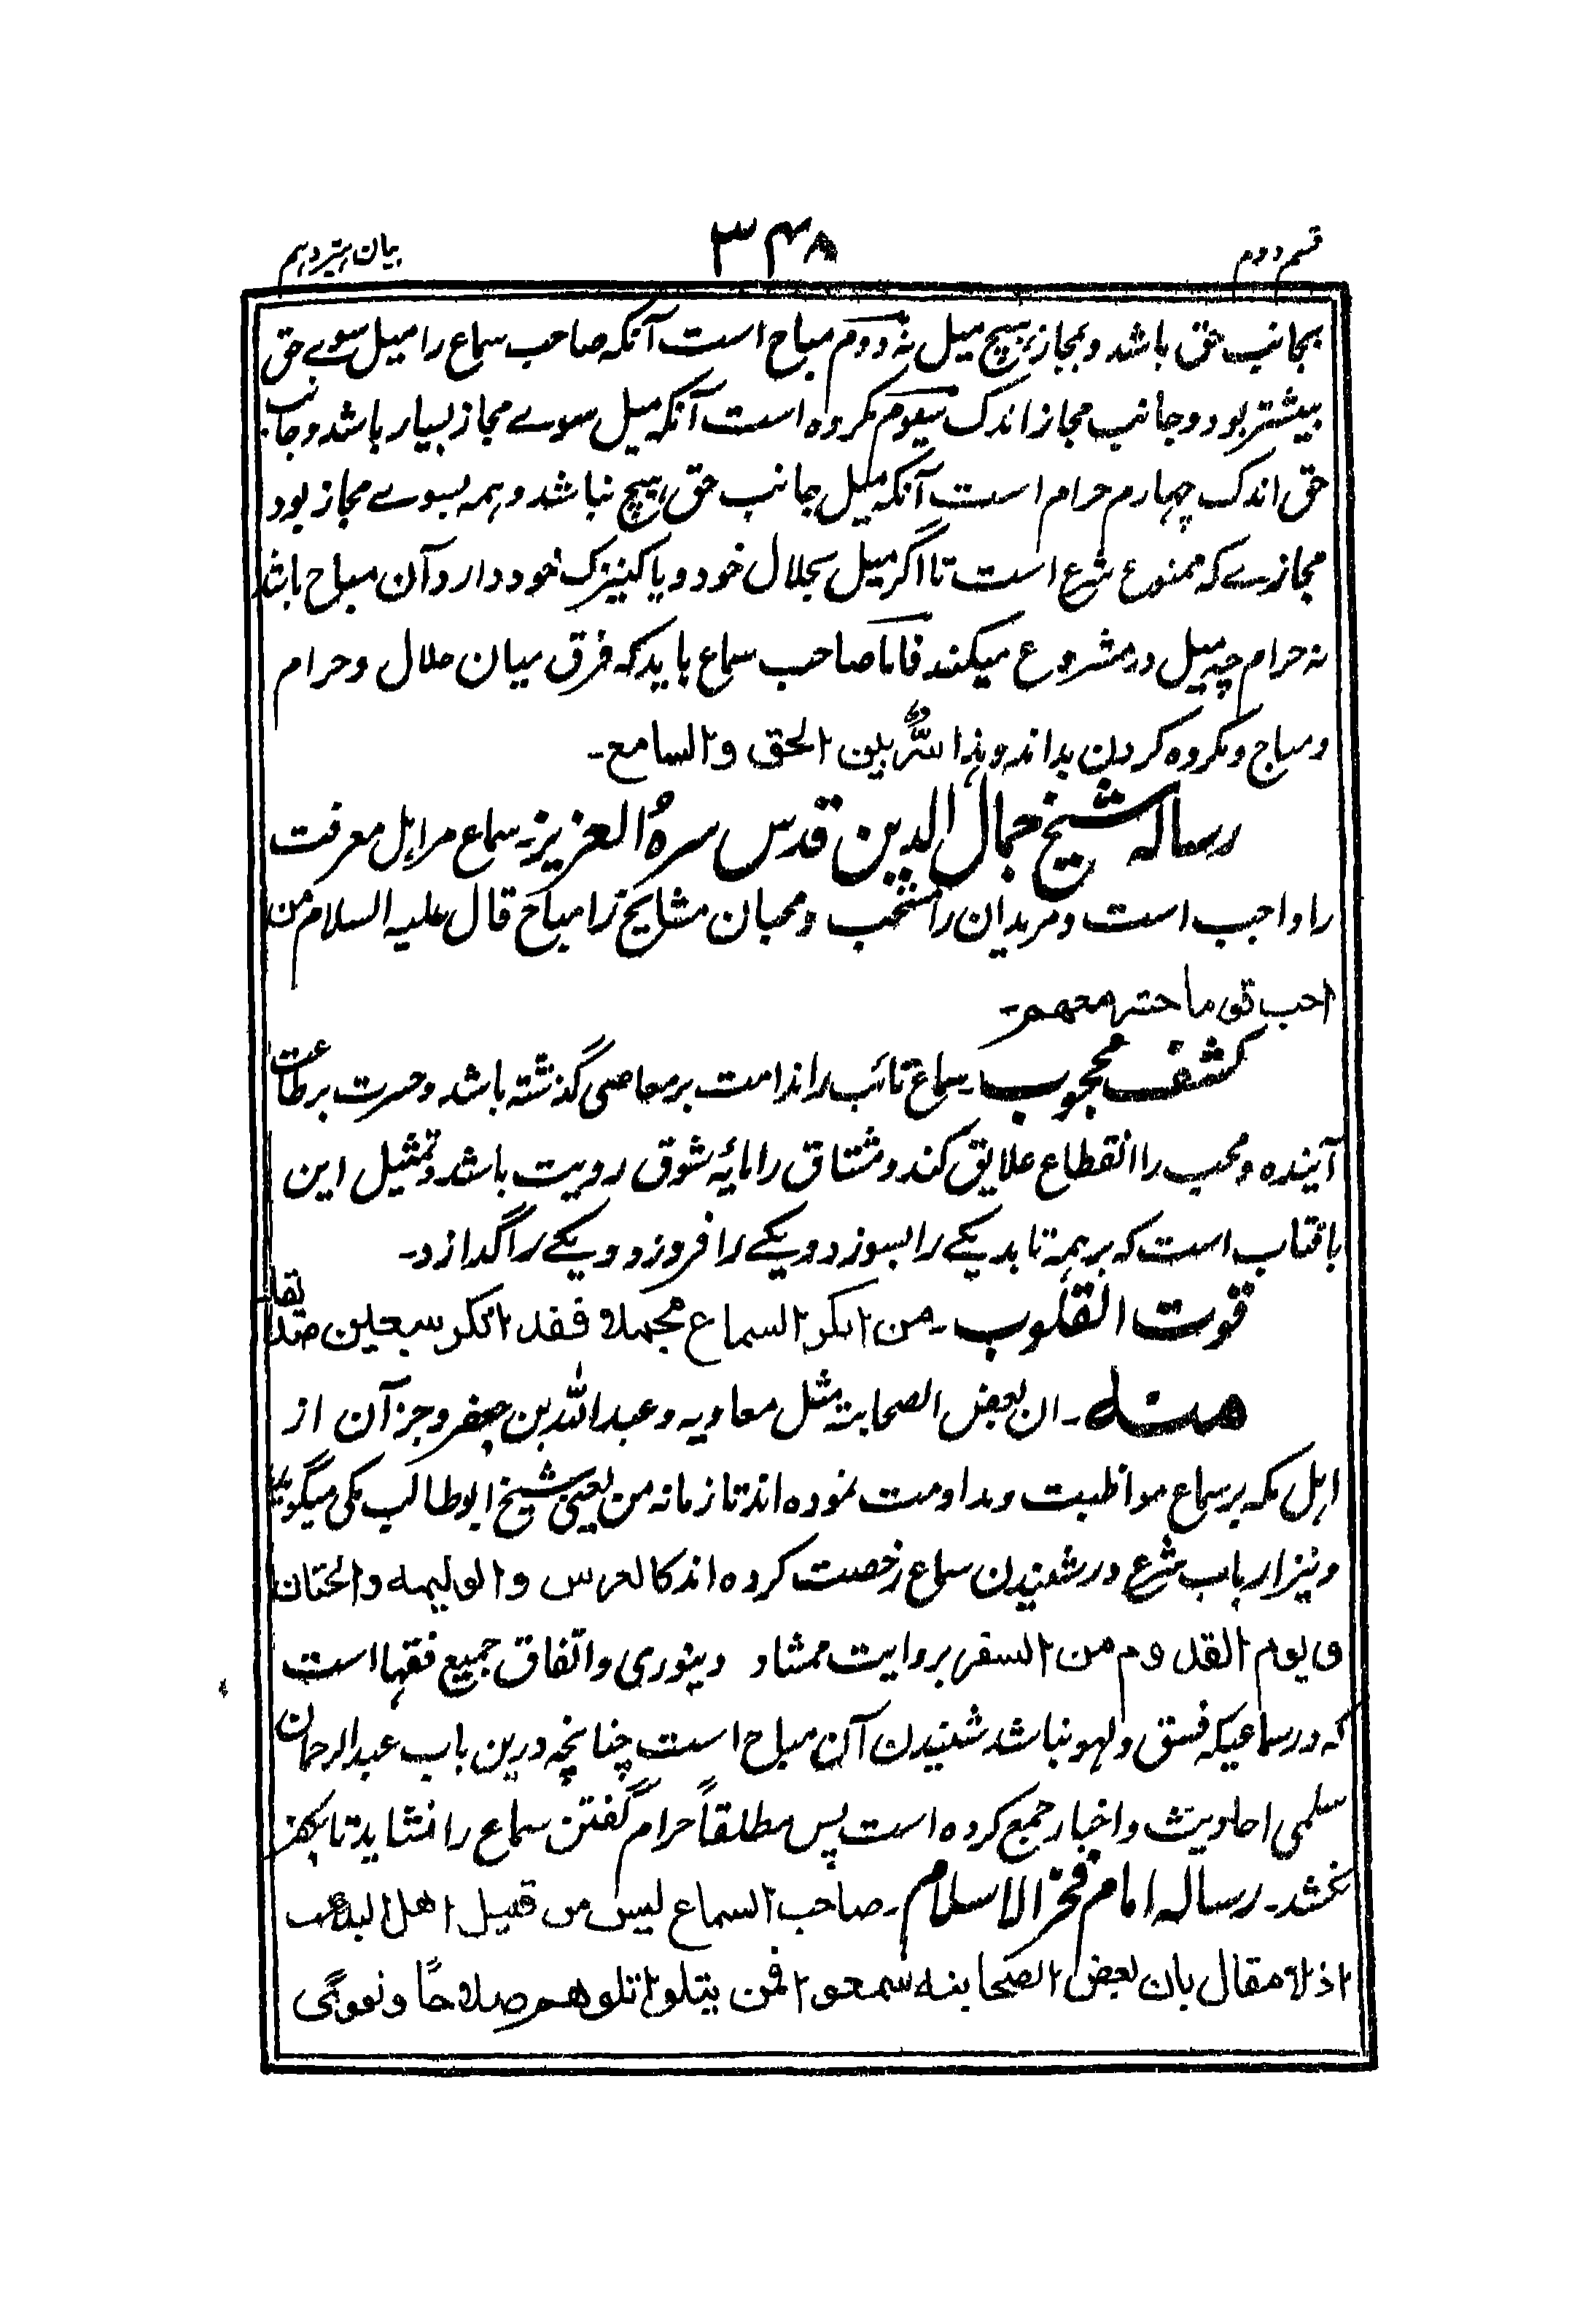 قسم دوم
۳۴۸
بیان سیزدهم
بجانب حق باشد و بمجاز هیچ میل نه دوم مباح است آنکه صاحب سماع را میل سوے حق
بیشتر بود و جانب مجاز اندک سیوم مکروه است آنکه میل سوے مجاز بسیار باشد و جانب
حق اندک چهارم حرام است آنکه میل جانب حق هیچ نباشد و همه بسوے مجاز بود
مجازے که ممنوع شرع است تا اگر میل بحلال خود و یا کنیزک خود دارد آن مباح باشد
نه حرام چه میل در مشروع میکند فاما صاحب سماع باید که فرق میان حلال و حرام
و مباح و مکروه کردن بداند و هذا سرٌّ بین الحق و السامع۔
رساله شیخ جمال الدین قدس سرهُ العزیز۔ سماع مر اهل معرفت
را واجب است و مریدان را مستحب و محبان مشایخ را مباح قال علیه السلام من
احب قوما حشر معهم۔
کشف محجوب۔ سماع تائب را ندامت بر معاصی گذشته باشد و حسرت بر طاعت
آینده و محب را انقطاع علایق کند و مشتاق را مایۀ شوق رویت باشد و تمثیل این
بافتاب است که بر همه تابد یکے را بسوزد و یکے را فروزد و یکے را گدازد۔
قوت القلوب۔ من انکر السماع مجملا فقد انکر سبعین صدیقا
منه۔ ان بعض الصحابته مثل معاویه و عبد الله بن جعفر و جز آن از
اهل مکه بر سماع مواظبت و مداومت نموده اند تا زمانه من یعنی شیخ ابو طالب مکی میگوید
و نیز ارباب شرع در شنیدن سماع رخصت کرده اند کالعرس و الولیمه و الختان
و یوم القدوم من السفر بروایت ممشاد دینوری و اتفاق جمیع فقها است
که در سماعیکه فسق و لهو نباشد شنیدن آن مباح است چنانچه درین باب عبد الرحمان
سلمی احادیث و اخبار جمع کرده است پس مطلقاً حرام گفتن سماع را نشاید تا بکفر
نکشد۔ رساله امام فخر الاسلام۔ صاحب السماع لیس من قبیل اهل البدعت
اذ لا مقال بان بعض الصحابته سمعوا فمن یتلو اتلوهم صلاحًا و